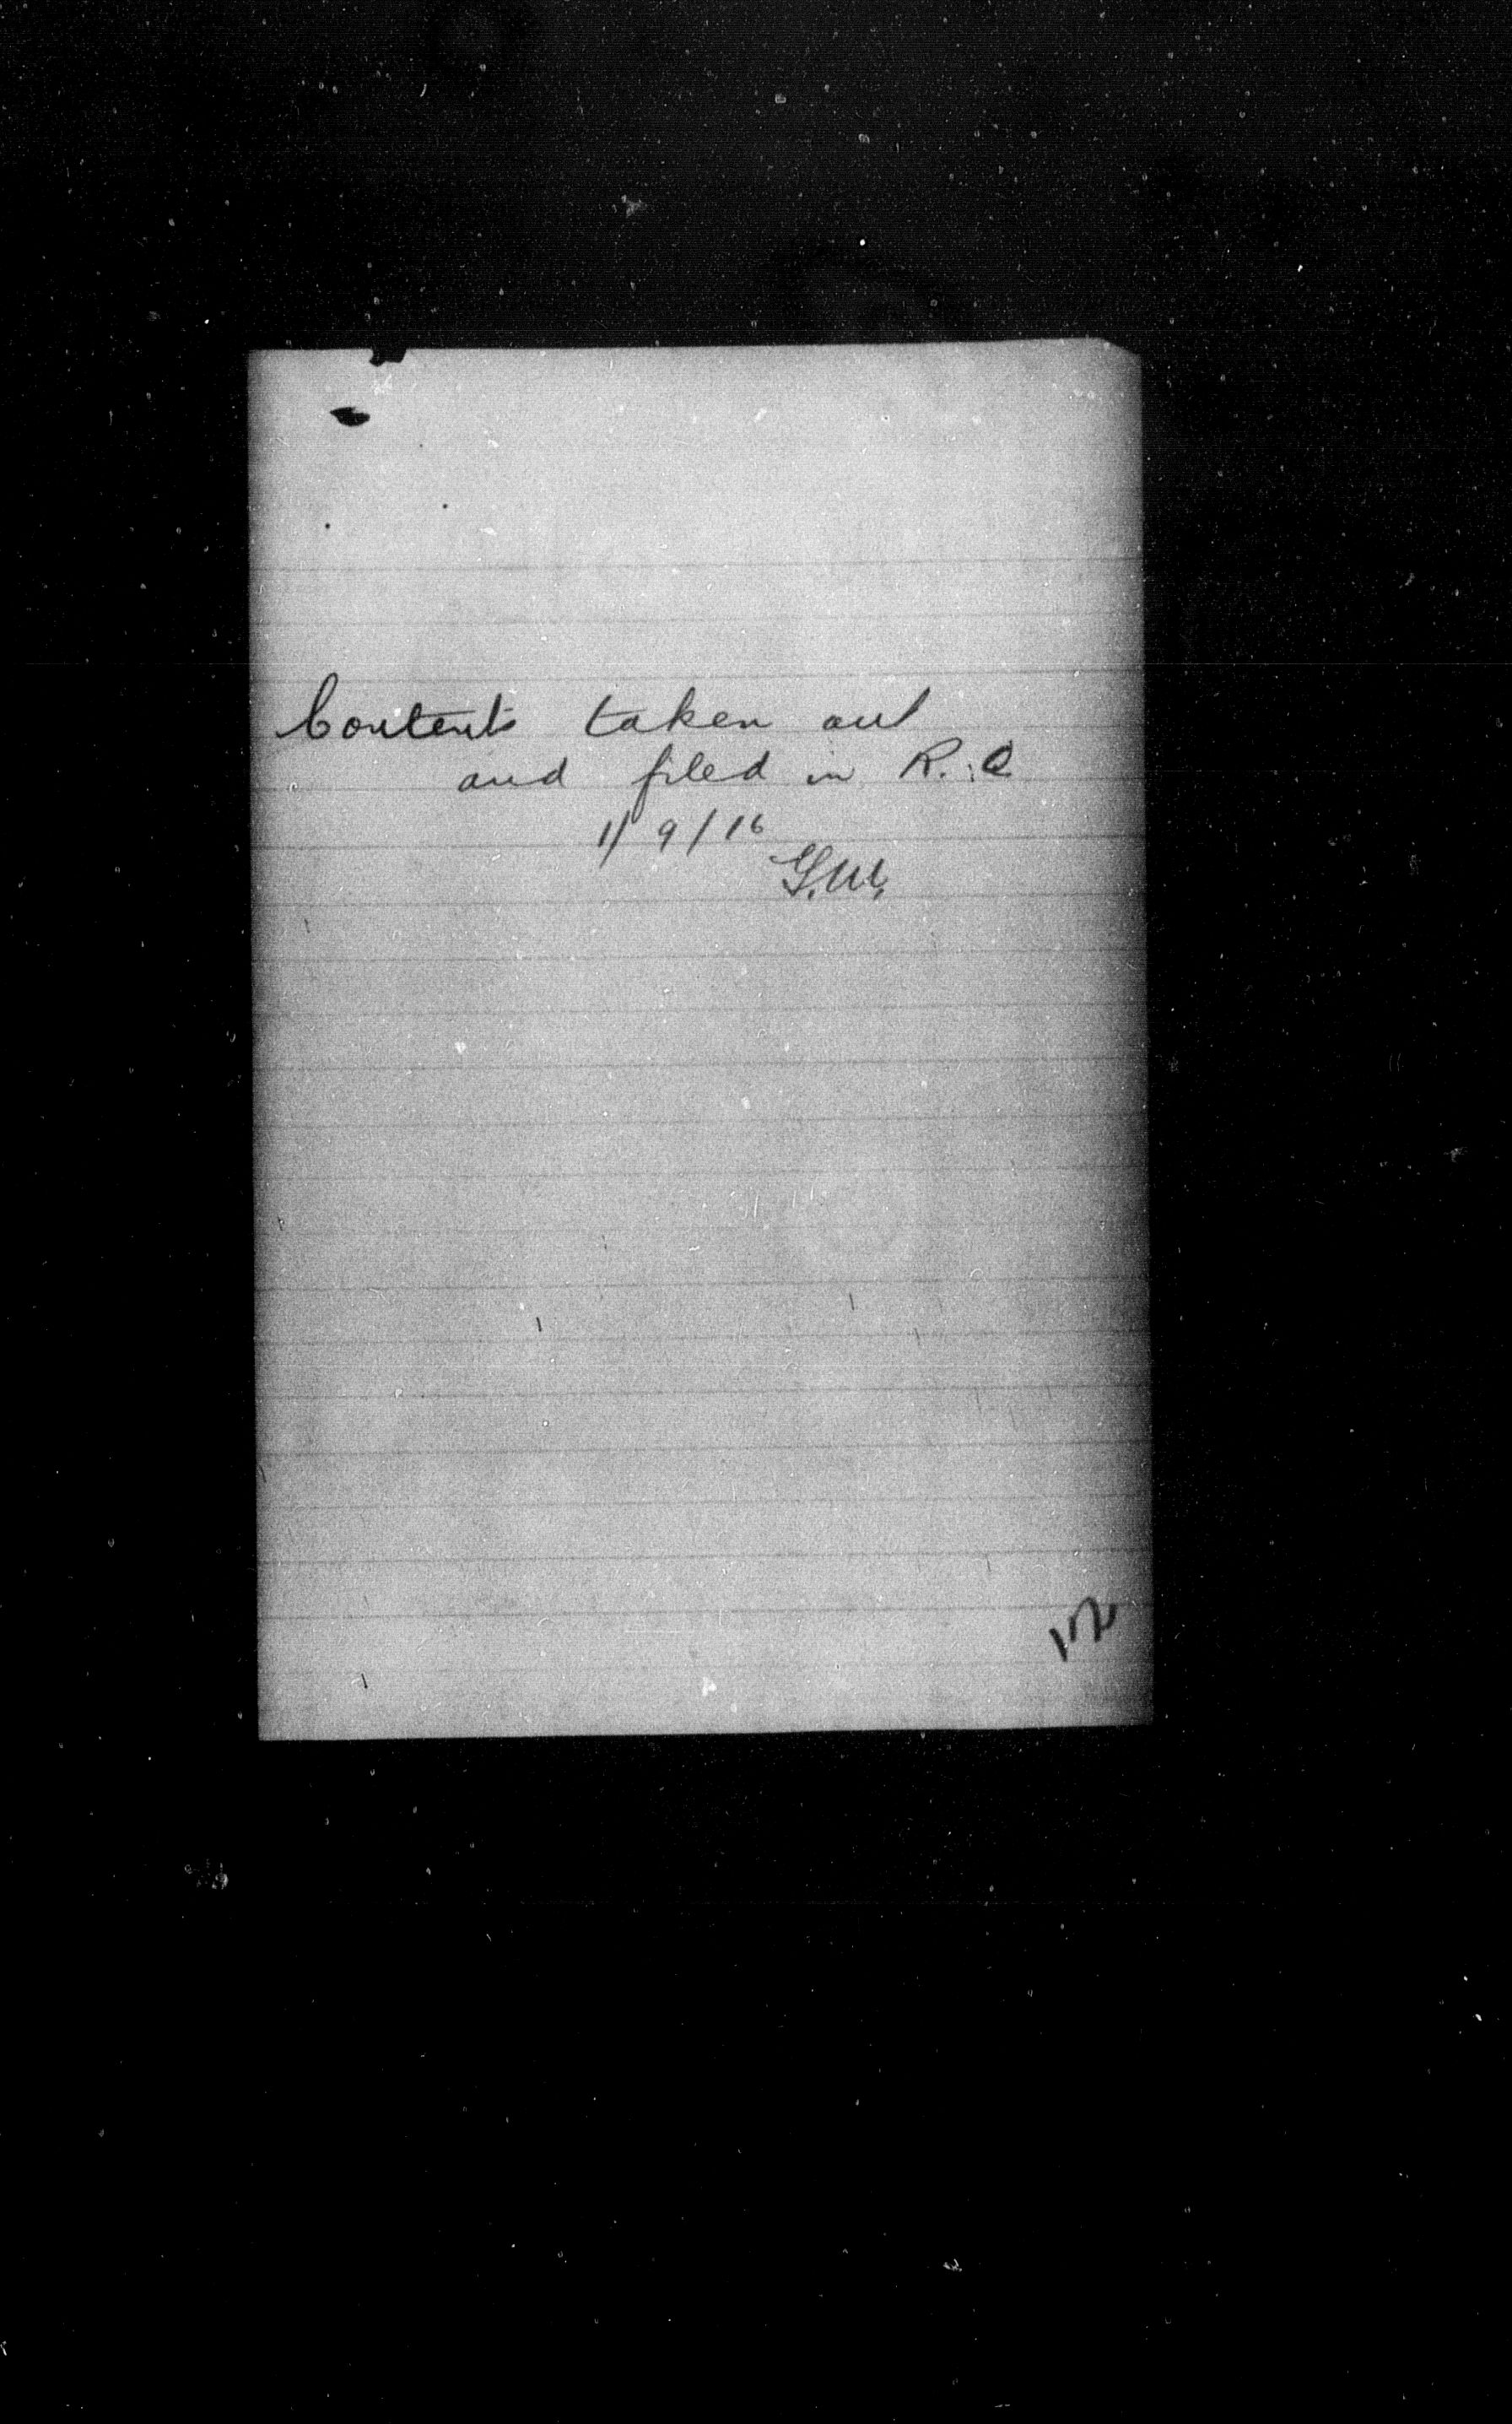 Contents taken out
and filed in R. C
1/9/16
G.W.